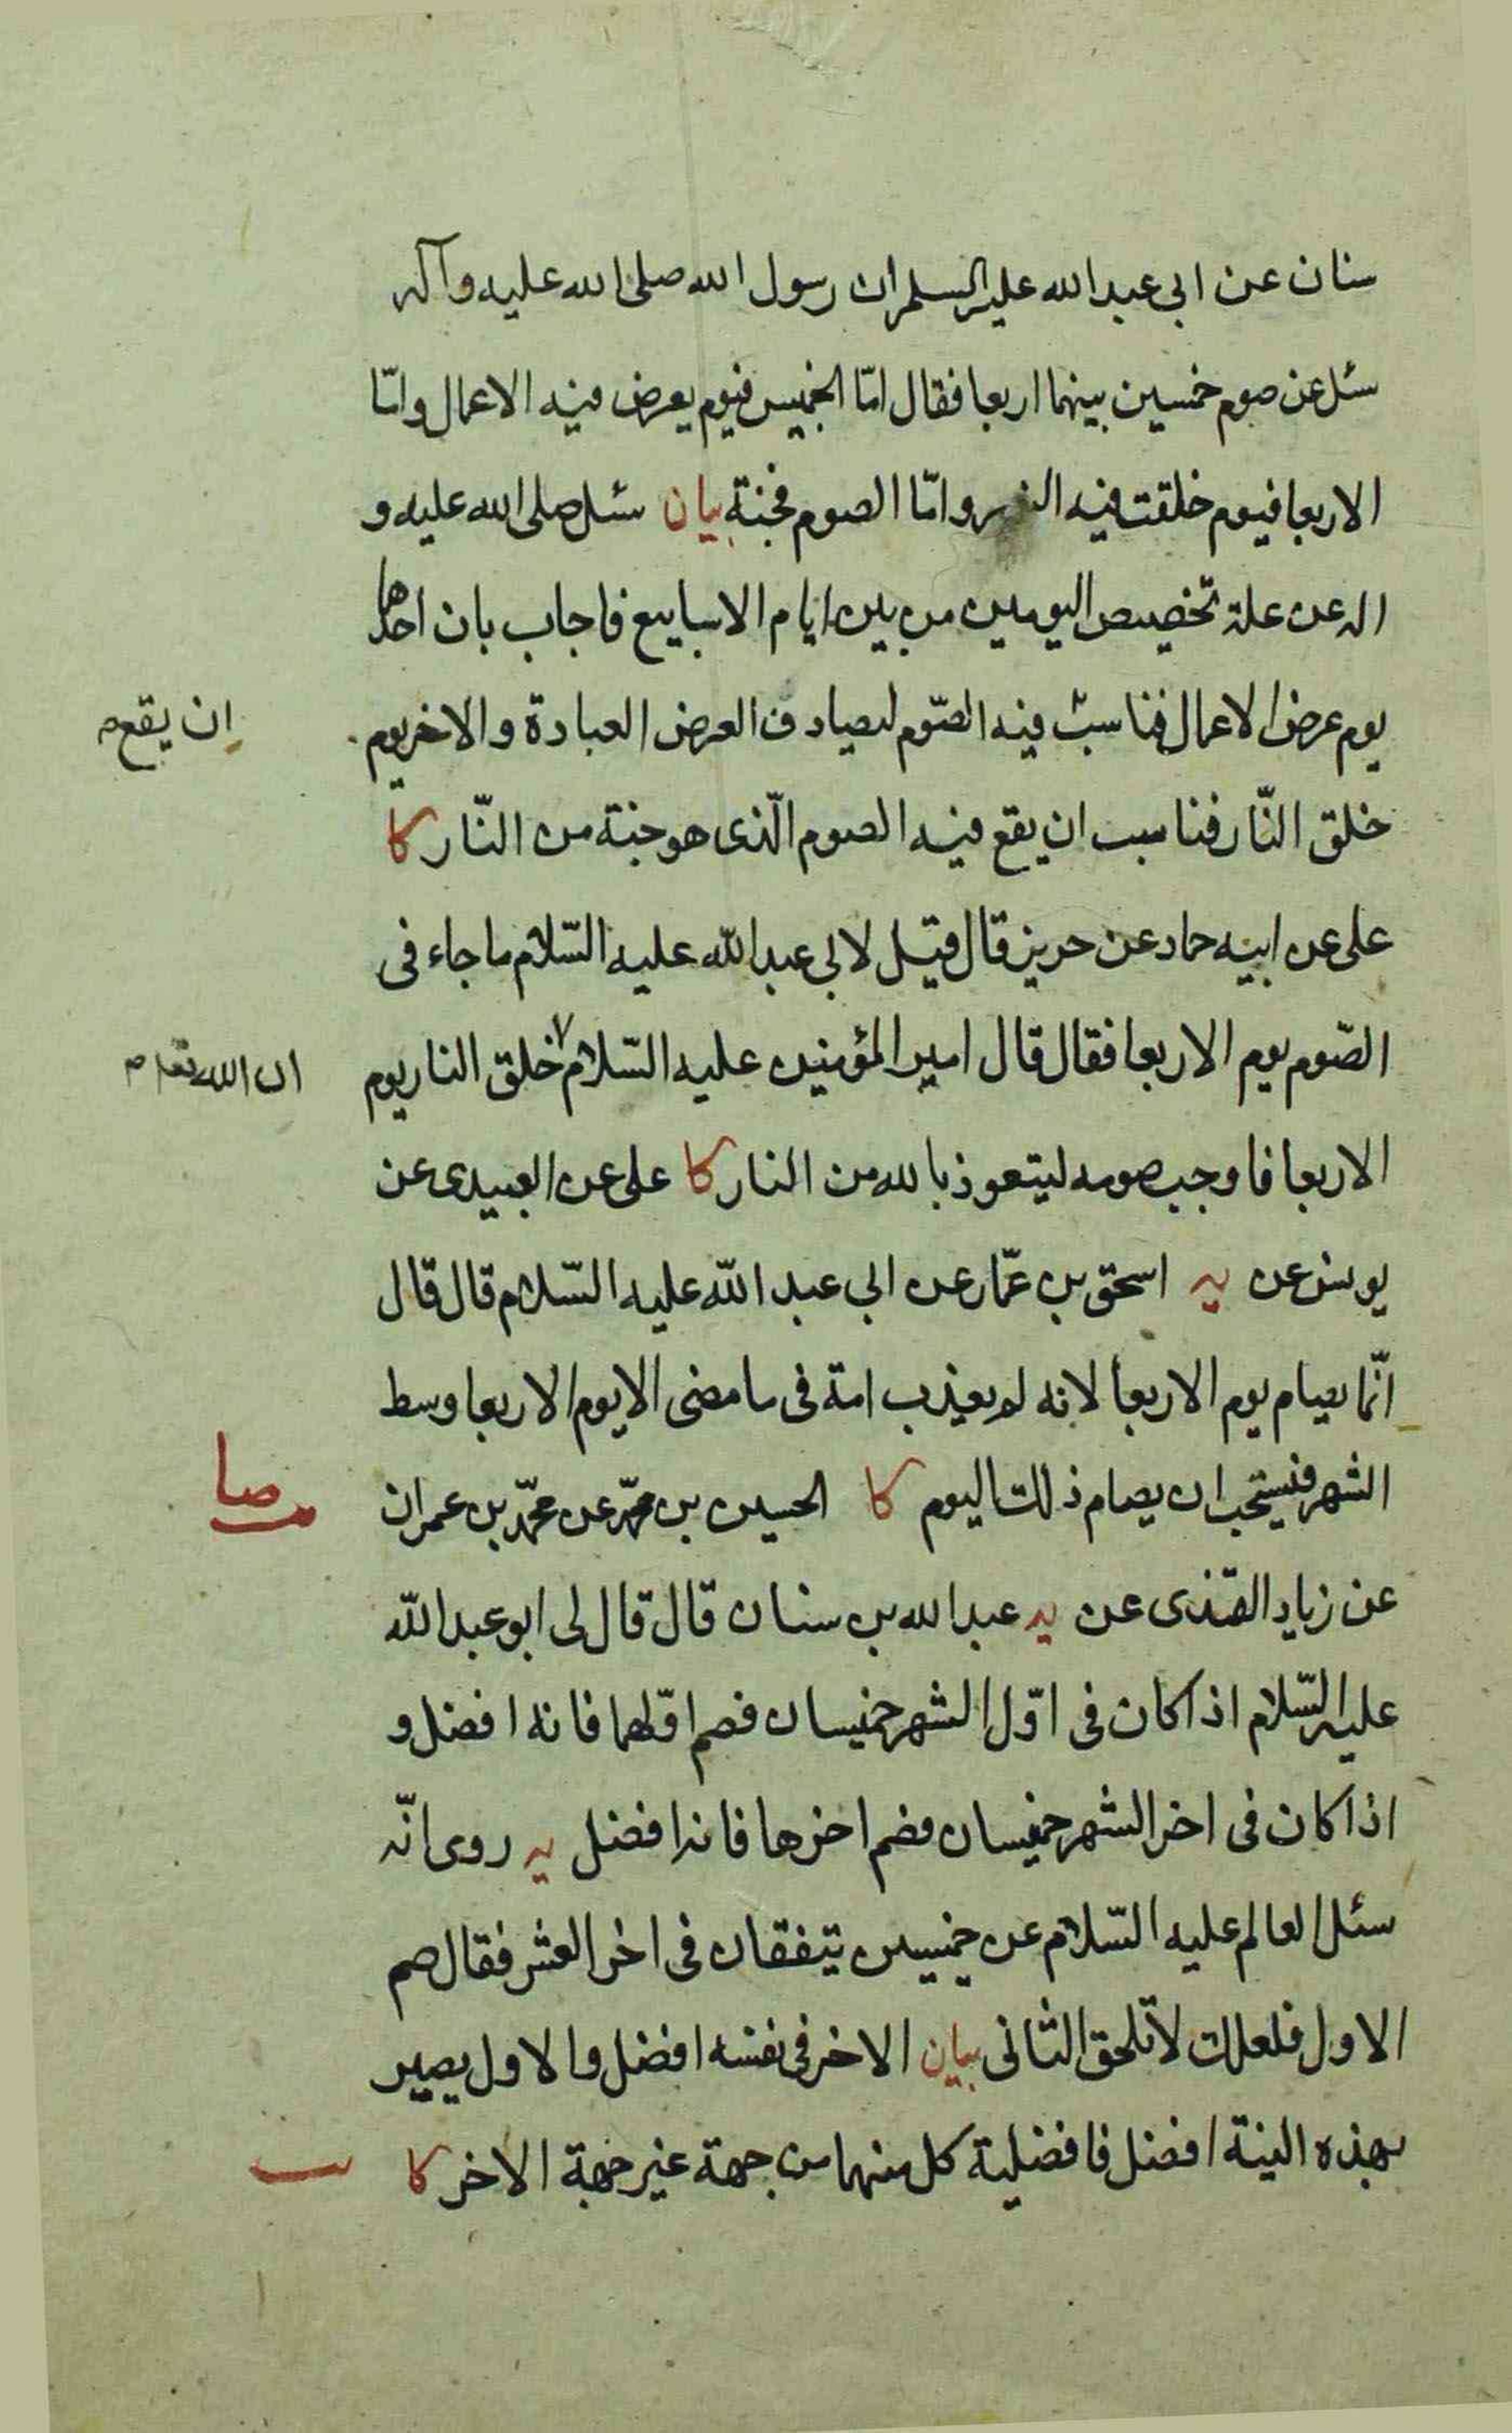 سنان عن ابی عبد الله علیه السلم ان رسول الله صلی الله علیه وآله
سئل عن صوم خمسین بینهما اربعا فقال امّا الخمیس فیوم یعرض فیه الاعمال وامّا
الاربعا فیوم خلقت فیه وامّا الصوم فجنة بیان سئل صلی الله علیه و
اله عن علة تخصیص الیومین من بین ایام الاسابیع فاجاب بان احدهما
یوم عرض الاعمال فناسب فیه الصّوم لیصادف العرض العبادة والاخر یوم
ان یقع
خلق النّار فناسب ان یقع فیه الصوم الّذی هو جنة من النّار کا
علی عن ابیه حماد عن حریز قال قیل لابی عبد الله علیه السّلام ما جاء فی
الصّوم یوم الاربعا فقال قال امیر المؤمنین علیه السّلام خلق النار یوم
ان الله تعا
الاربعا فاوجب صومه لیتعوذ بالله من النار کا علی عن العبیدی عن
یونس عن یه اسحق بن عمّار عن ابی عبد الله علیه السّلام قال قال
انّما یصام یوم الاربعا لانه لم یعذب امة فی ما مضی الا یوم الاربعا وسط
الشهر فیستحب ان یصام ذلک الیوم کا الحسین بن محمّد عن محمّد بن عمران
صا
عن زیاد القندی عن یه عبد الله بن سنان قال قال لی ابو عبد الله
علیه السّلام اذا کان فی اوّل الشهر خمیسان فصم اوّلهما فانه افضل و
اذا کان فی اخر الشهر خمیسان فصم اخرها فانه افضل یه روی انّه
سئل العالم علیه السّلام عن خمیسین یتفقان فی اخر العشر فقال صم
الاول فلعلک لا تلحق الثانی بیان الاخر فی نفسه افضل والاول یصیر
بهذه النیة افضل فافضلیة کل منهما من جهة غیر جهة الاخر کا